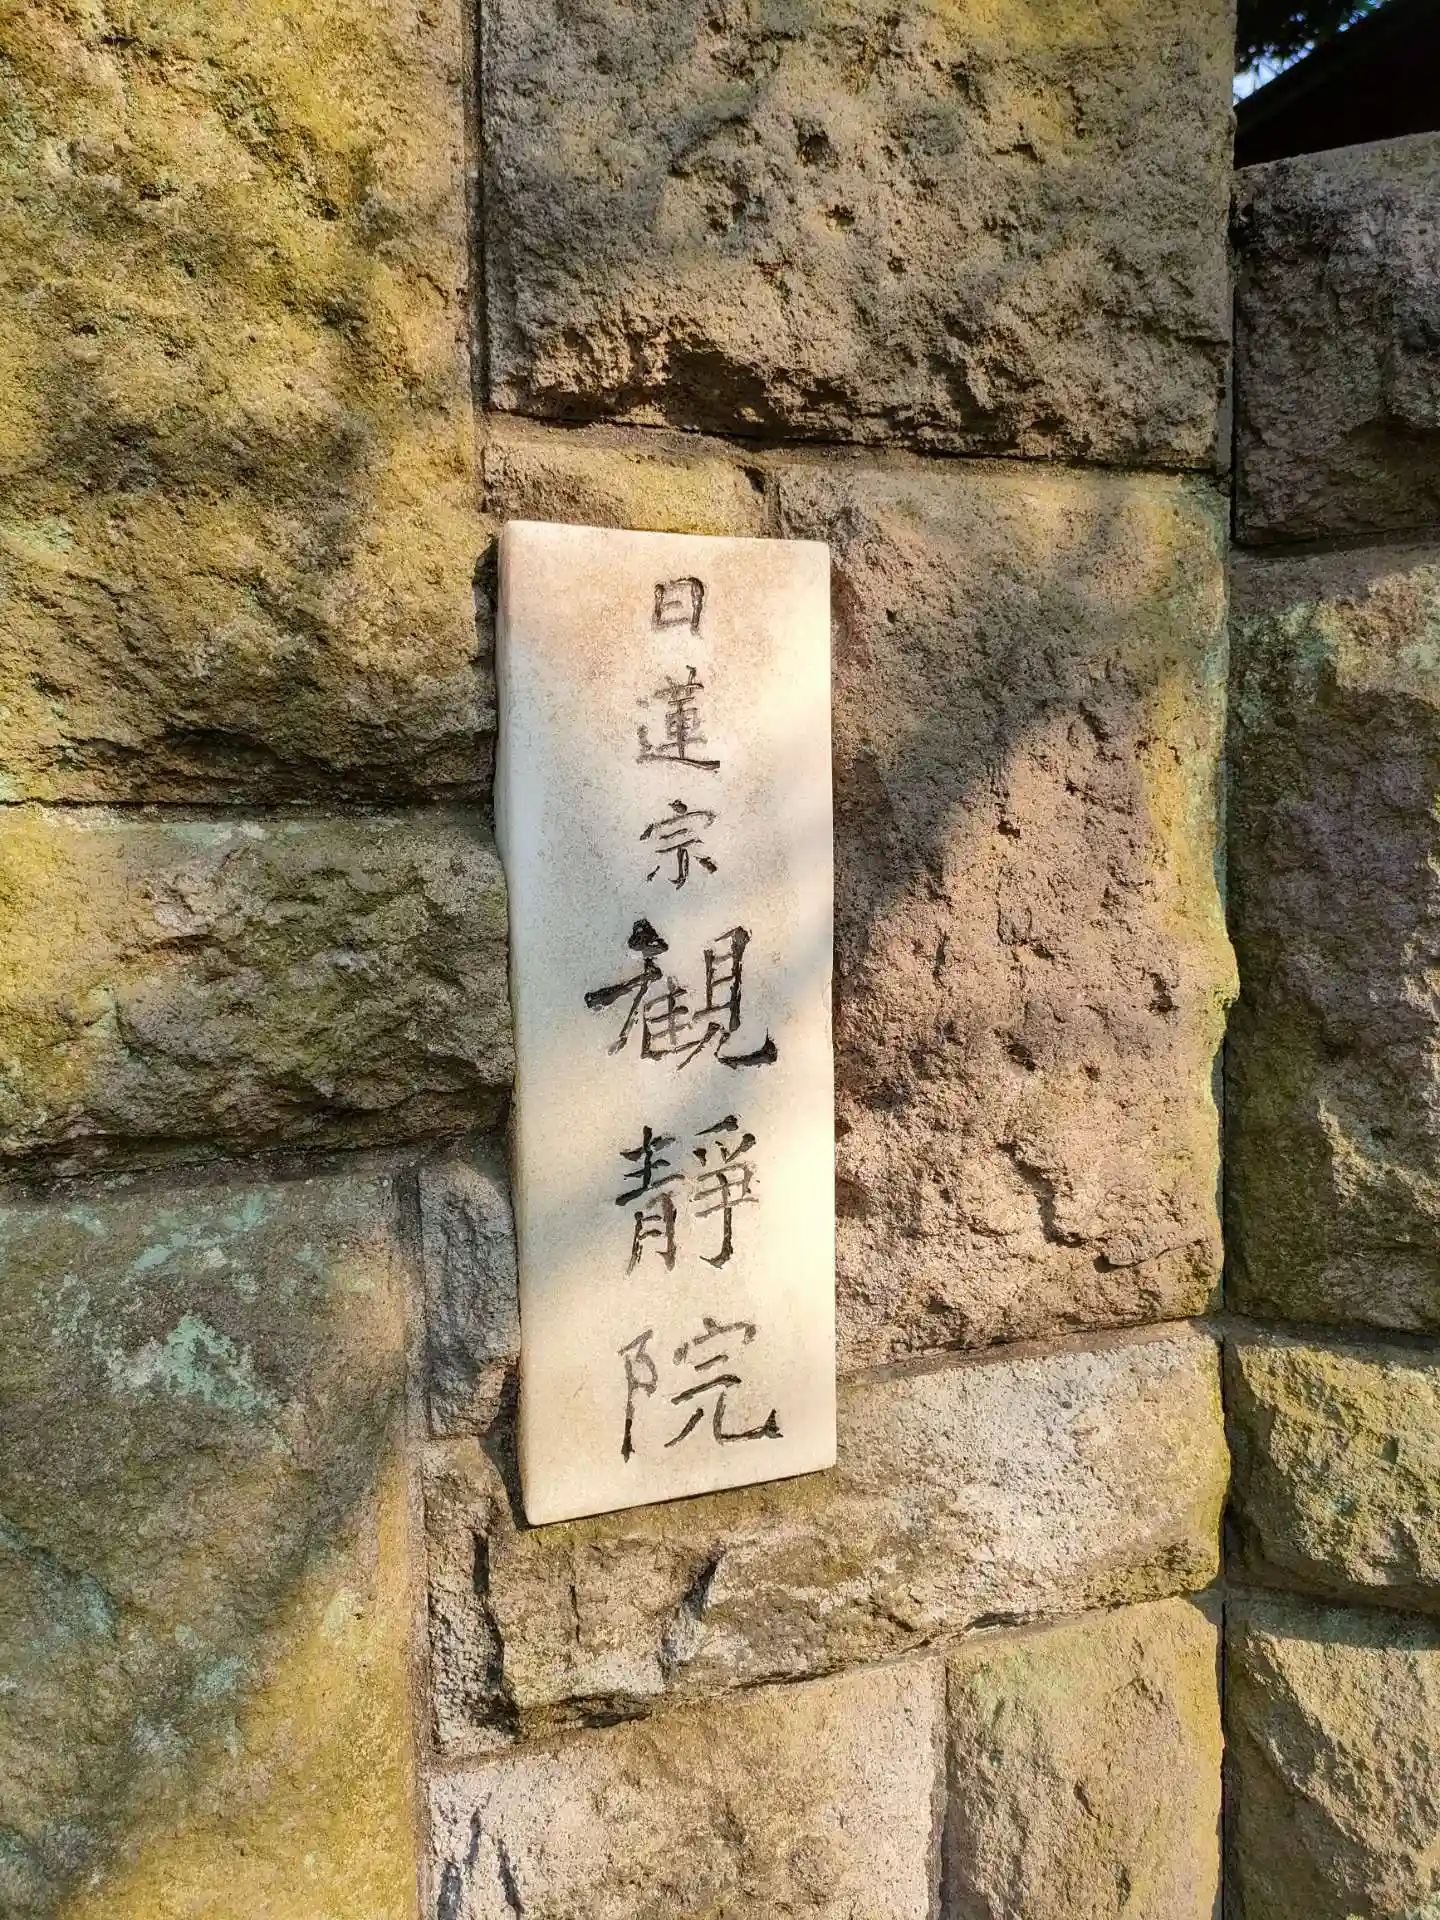 日蓮宗観靜院